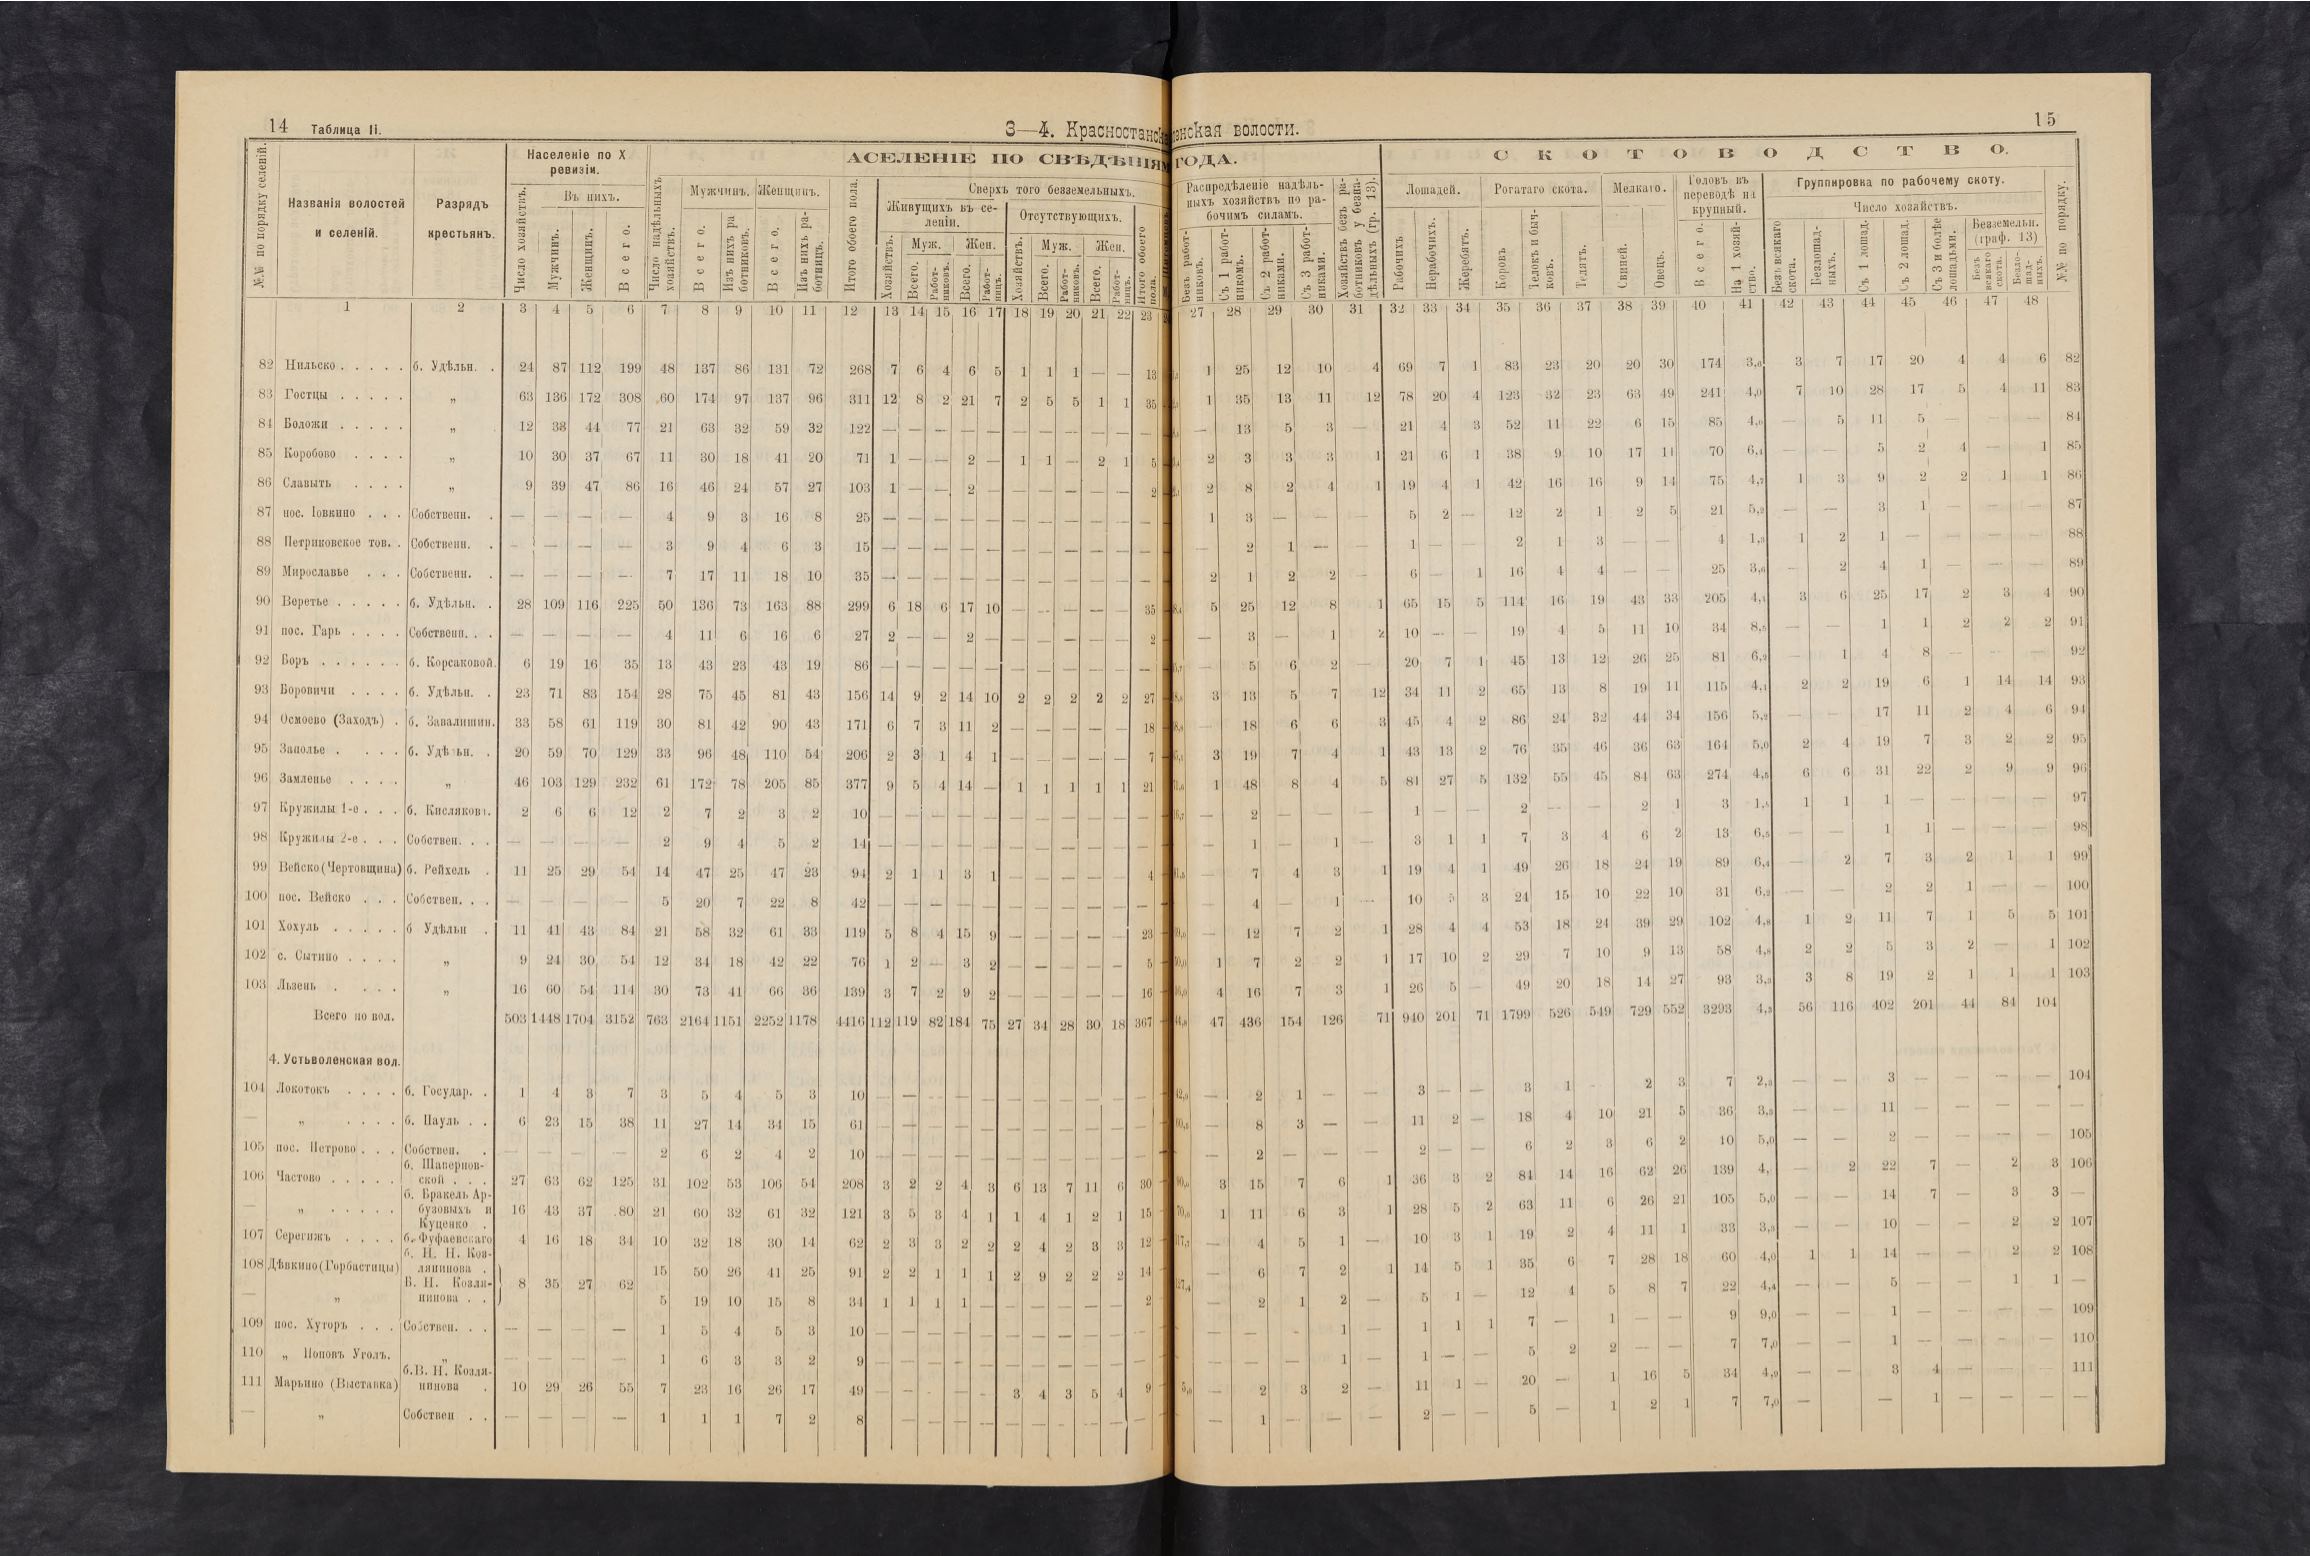 14 Таблица II.
3—4. Красностанск
енская волости.
15
№№ по порядку селеній.
Названія волостей и селеній.
Разрядъ крестьянъ.
Населеніе по X ревизіи.
Число хозяйствъ.
Въ нихъ.
Мужчинъ.
Женщинъ.
Всего.
АСЕЛЕНІЕ ПО СВѢДѢНІЯМ
ГОДА.
Число надѣльныхъ хозяйствъ.
Мужчинъ. Женщинъ.
Всего.
Изъ нихъ работниковъ.
Всего.
Изъ нихъ работницъ.
Итого обоего пола.
Сверхъ того безземельныхъ.
Живущихъ въ селеніи.
Отсутствующихъ.
Хозяйствъ.
Муж. Жен.
Всего.
Работниковъ.
Всего.
Работницъ.
Хозяйствъ.
Муж. Жен.
Всего.
Работниковъ.
Всего.
Работницъ.
Итого обоего пола.
Распредѣленіе надѣльныхъ хозяйствъ по рабочимъ силамъ.
Безъ работниковъ.
Съ 1 работникомъ.
Съ 2 работниками.
Съ 3 работниками.
Хозяйствъ безъ работниковъ у безнадѣльныхъ (гр. 13).
СКОТОВОДСТВО.
Лошадей.
Рабочихъ
Нерабочихъ.
Жеребятъ.
Рогатаго скота.
Коровъ
Телокъ и бычковъ.
Телятъ.
Мелкаго.
Свиней.
Овецъ.
Головъ въ переводѣ на крупный.
Всего.
На 1 хозяйство.
Группировка по рабочему скоту.
Число хозяйствъ.
Безъ всякаго скота.
Безлошадныхъ.
Съ 1 лошад.
Съ 2 лошад.
Съ 3 и болѣе лошадьми.
Безземельн. (граф. 13)
Безъ всякаго скота.
Безлошадныхъ.
№№ по порядку.
1 2 3 4 5 6 7 8 9 10 11 12 13 14 15 16 17 18 19 20 21 22 23 27 28 29 30 31 32 33 34 35 36 37 38 39 40 41 42 43 44 45 46 47 48
82 Нильско . . . . . б. Удѣльн. . 24 87 112 199 48 137 86 131 72 268 7 6 4 6 5 1 1 1 — — 13 1 25 12 10 4 69 7 1 83 23 20 20 30 174 3,6 3 7 17 20 4 4 6 82
83 Гостцы . . . . . „ 63 136 172 308 60 174 97 137 96 311 12 8 2 21 7 2 5 5 1 1 35 1 35 13 11 12 78 20 4 123 32 23 63 49 241 4,0 7 10 28 17 5 4 11 83
84 Боложи . . . . . „ 12 33 44 77 21 63 32 59 32 122 — — — — — — — — — — — — 13 5 3 — 21 4 3 52 11 22 6 15 85 4,0 — 5 11 5 — — — 84
85 Коробово . . . . „ 10 30 37 67 11 30 18 41 20 71 1 — — 2 — 1 1 — 2 1 5 2 3 3 3 1 21 6 1 38 9 10 17 11 70 6,4 — — 5 2 4 — 1 85
86 Славыть . . . . „ 9 39 47 86 16 46 24 57 27 103 1 — — 2 — — — — — — 2 2 8 2 4 1 19 4 1 42 16 16 9 14 75 4,7 1 3 9 2 2 1 1 86
87 пос. Іовкино . . . Собственн. . — — — — 4 9 3 16 8 25 — — — — — — — — — — — 1 3 — — — 5 2 — 12 2 1 2 5 21 5,2 — — 3 1 — — — 87
88 Петриковское тов. . Собственн. . — — — — 3 9 4 6 3 15 — — — — — — — — — — — — 2 1 — — 1 — — 2 1 3 — — 4 1,3 1 2 1 — — — — 88
89 Мирославье . . . Собственн. . — — — — 7 17 11 18 10 35 — — — — — — — — — — — 2 1 2 2 — 6 — 1 16 4 4 — — 25 3,6 — 2 4 1 — — — 89
90 Веретье . . . . . б. Удѣльн. . 28 109 116 225 50 136 73 163 88 299 6 18 6 17 10 — — — — — 35 5 25 12 8 1 65 15 5 114 16 19 43 33 205 4,1 3 6 25 17 2 3 4 90
91 пос. Гарь . . . . Собственн. . . — — — — 4 11 6 16 6 27 2 — — 2 — — — — — — 2 — 3 — 1 2 10 — — 19 4 5 11 10 34 8,5 — — 1 1 2 2 2 91
92 Боръ . . . . . . б. Корсаковой. 6 19 16 35 13 43 23 43 19 86 — — — — — — — — — — — — 5 6 2 — 20 7 1 45 13 12 26 25 81 6,2 — 1 4 8 — — — 92
93 Боровичи . . . . б. Удѣльн. . 23 71 83 154 28 75 45 81 43 156 14 9 2 14 10 2 2 2 2 2 27 3 13 5 7 12 34 11 2 65 13 8 19 11 115 4,1 2 2 19 6 1 14 14 93
94 Осмоево (Заходъ) . б. Завалишин. 33 58 61 119 30 81 42 90 43 171 6 7 3 11 2 — — — — — 18 — 18 6 6 3 45 4 2 86 24 32 44 34 156 5,2 — — 17 11 2 4 6 94
95 Заполье . . . . б. Удѣльн. . 20 59 70 129 33 96 48 110 54 206 2 3 1 4 1 — — — — — 7 3 19 7 4 1 43 13 2 76 35 46 36 63 164 5,0 2 4 19 7 3 2 2 95
96 Замленье . . . . „ 46 103 129 232 61 172 78 205 85 377 9 5 4 14 — 1 1 1 1 1 21 1 48 8 4 5 81 27 5 132 55 45 84 63 274 4,5 6 6 31 22 2 9 9 96
97 Кружилы 1-е . . . б. Кисляковъ. 2 6 6 12 2 7 2 3 2 10 — — — — — — — — — — — — 2 — — — 1 — — 2 — — 2 1 3 1,5 1 1 1 — — — — 97
98 Кружилы 2-е . . . Собствен. . . — — — — 2 9 4 5 2 14 — — — — — — — — — — — — 1 — 1 — 3 1 1 7 3 4 6 2 13 6,5 — — 1 1 — — — 98
99 Вейско (Чертовщина) б. Рейхель . 11 25 29 54 14 47 25 47 23 94 2 1 1 3 1 — — — — — 4 — 7 4 3 1 19 4 1 49 26 18 24 19 89 6,4 — 2 7 3 2 1 1 99
100 пос. Вейско . . . Собствен. . . — — — — 5 20 7 22 8 42 — — — — — — — — — — — — 4 — 1 — 10 5 3 24 15 10 22 10 31 6,2 — — 2 2 1 — — 100
101 Хохуль . . . . . б Удѣльн . 11 41 43 84 21 58 32 61 33 119 5 8 4 15 9 — — — — — 23 — 12 7 2 1 28 4 4 53 18 24 39 29 102 4,8 1 2 11 7 1 5 5 101
102 с. Сытино . . . . „ 9 24 30 54 12 34 18 42 22 76 1 2 — 3 2 — — — — — 5 1 7 2 2 1 17 10 2 29 7 10 9 13 58 4,8 2 2 5 3 2 — 1 102
103 Льзень . . . . „ 16 60 54 114 30 73 41 66 36 139 3 7 2 9 2 — — — — — 16 4 16 7 3 1 26 5 — 49 20 18 14 27 93 3,3 3 8 19 2 1 1 1 103
Всего по вол. 503 1448 1704 3152 763 2164 1151 2252 1178 4416 112 119 82 184 75 27 34 28 30 18 367 47 436 154 126 71 940 201 71 1799 526 549 729 552 3293 4,3 56 116 402 201 44 84 104
4. Устьволенская вол.
104 Локотокъ . . . . б. Государ. . 1 4 3 7 3 5 4 5 3 10 — — — — — — — — — — — — 2 1 — — 3 — — 3 1 — 2 3 7 2,3 — — 3 — — — — 104
— „ . . . . б. Пауль . . 6 23 15 38 11 27 14 34 15 61 — — — — — — — — — — — — 8 3 — — 11 2 — 18 4 10 21 5 36 3,3 — — 11 — — — — —
105 пос. Петрово . . . Собствен. . — — — — 2 6 2 4 2 10 — — — — — — — — — — — — 2 — — — 2 — — 6 2 3 6 2 10 5,0 — — 2 — — — — 105
106 Частово . . . . . б. Шапернов-
ской . . . 27 63 62 125 31 102 53 106 54 208 3 2 2 4 3 6 13 7 11 6 30 3 15 7 6 1 36 3 2 84 14 16 62 26 139 4, — 2 22 7 — 2 3 106
— „ . . . . . б. Бракель Ар-
бузовыхъ и
Куценко . 16 43 37 80 21 60 32 61 32 121 3 5 3 4 1 1 4 1 2 1 15 1 11 6 3 1 28 5 2 63 11 6 26 21 105 5,0 — — 14 7 — 3 3 —
107 Серегижъ . . . . б. Фуфаевскаго 4 16 18 34 10 32 18 30 14 62 2 3 3 2 2 2 4 2 3 3 12 — 4 5 1 — 10 3 1 19 2 4 11 1 33 3,3 — — 10 — — 2 2 107
108 Дѣвкино (Горбастицы) б. Н. Н. Коз-
лянинова . 15 50 26 41 25 91 2 2 1 1 1 2 9 2 2 2 14 — 6 7 2 1 14 5 1 35 6 7 28 18 60 4,0 1 1 14 — — 2 2 108
— „ В. Н. Козля-
нинова . . 8 35 27 62 5 19 10 15 8 34 1 1 1 1 — — — — — — 2 — 2 1 2 — 5 1 — 12 4 5 8 7 22 4,4 — — 5 — — 1 1 —
109 пос. Хуторъ . . . Собствен. . . — — — — 1 5 4 5 3 10 — — — — — — — — — — — — — — 1 — 1 1 1 7 — 1 — — 9 9,0 — — 1 — — — — 109
110 „ Поповъ Уголъ. „ — — — — 1 6 3 3 2 9 — — — — — — — — — — — — — — 1 — 1 — — 5 2 2 — — 7 7,0 — — 1 — — — — 110
111 Марьино (Выставка) б. В. Н. Козля-
нинова . 10 29 26 55 7 23 16 26 17 49 — — — — — 3 4 3 5 4 9 — 2 3 2 — 11 1 — 20 — 1 16 5 34 4,9 — — 3 4 — — — 111
— „ Собствен . . — — — — 1 1 1 7 2 8 — — — — — — — — — — — — 1 — — — 2 — — 5 — 1 2 1 7 7,0 — — — 1 — — — —